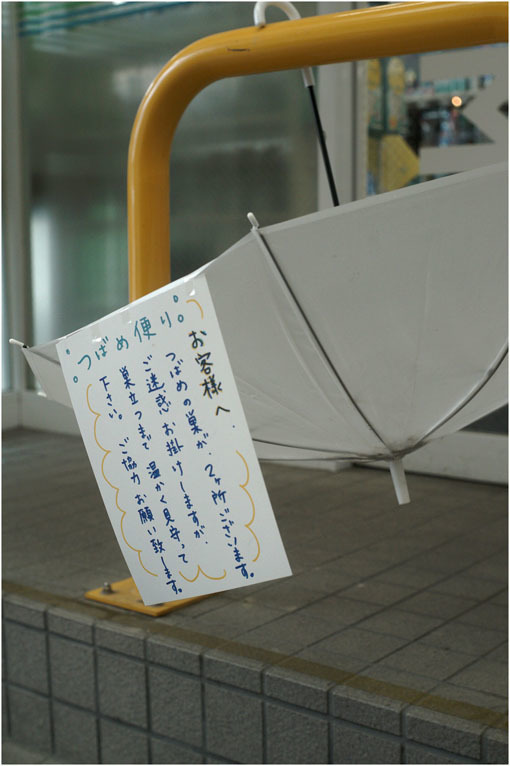 つばめ便り
お客様へ.
つばめの巣が、2ヶ所ございます。
ご迷惑お掛けしますが、
巣立つまで温かく見守って
下さい。ご協力お願い致します。